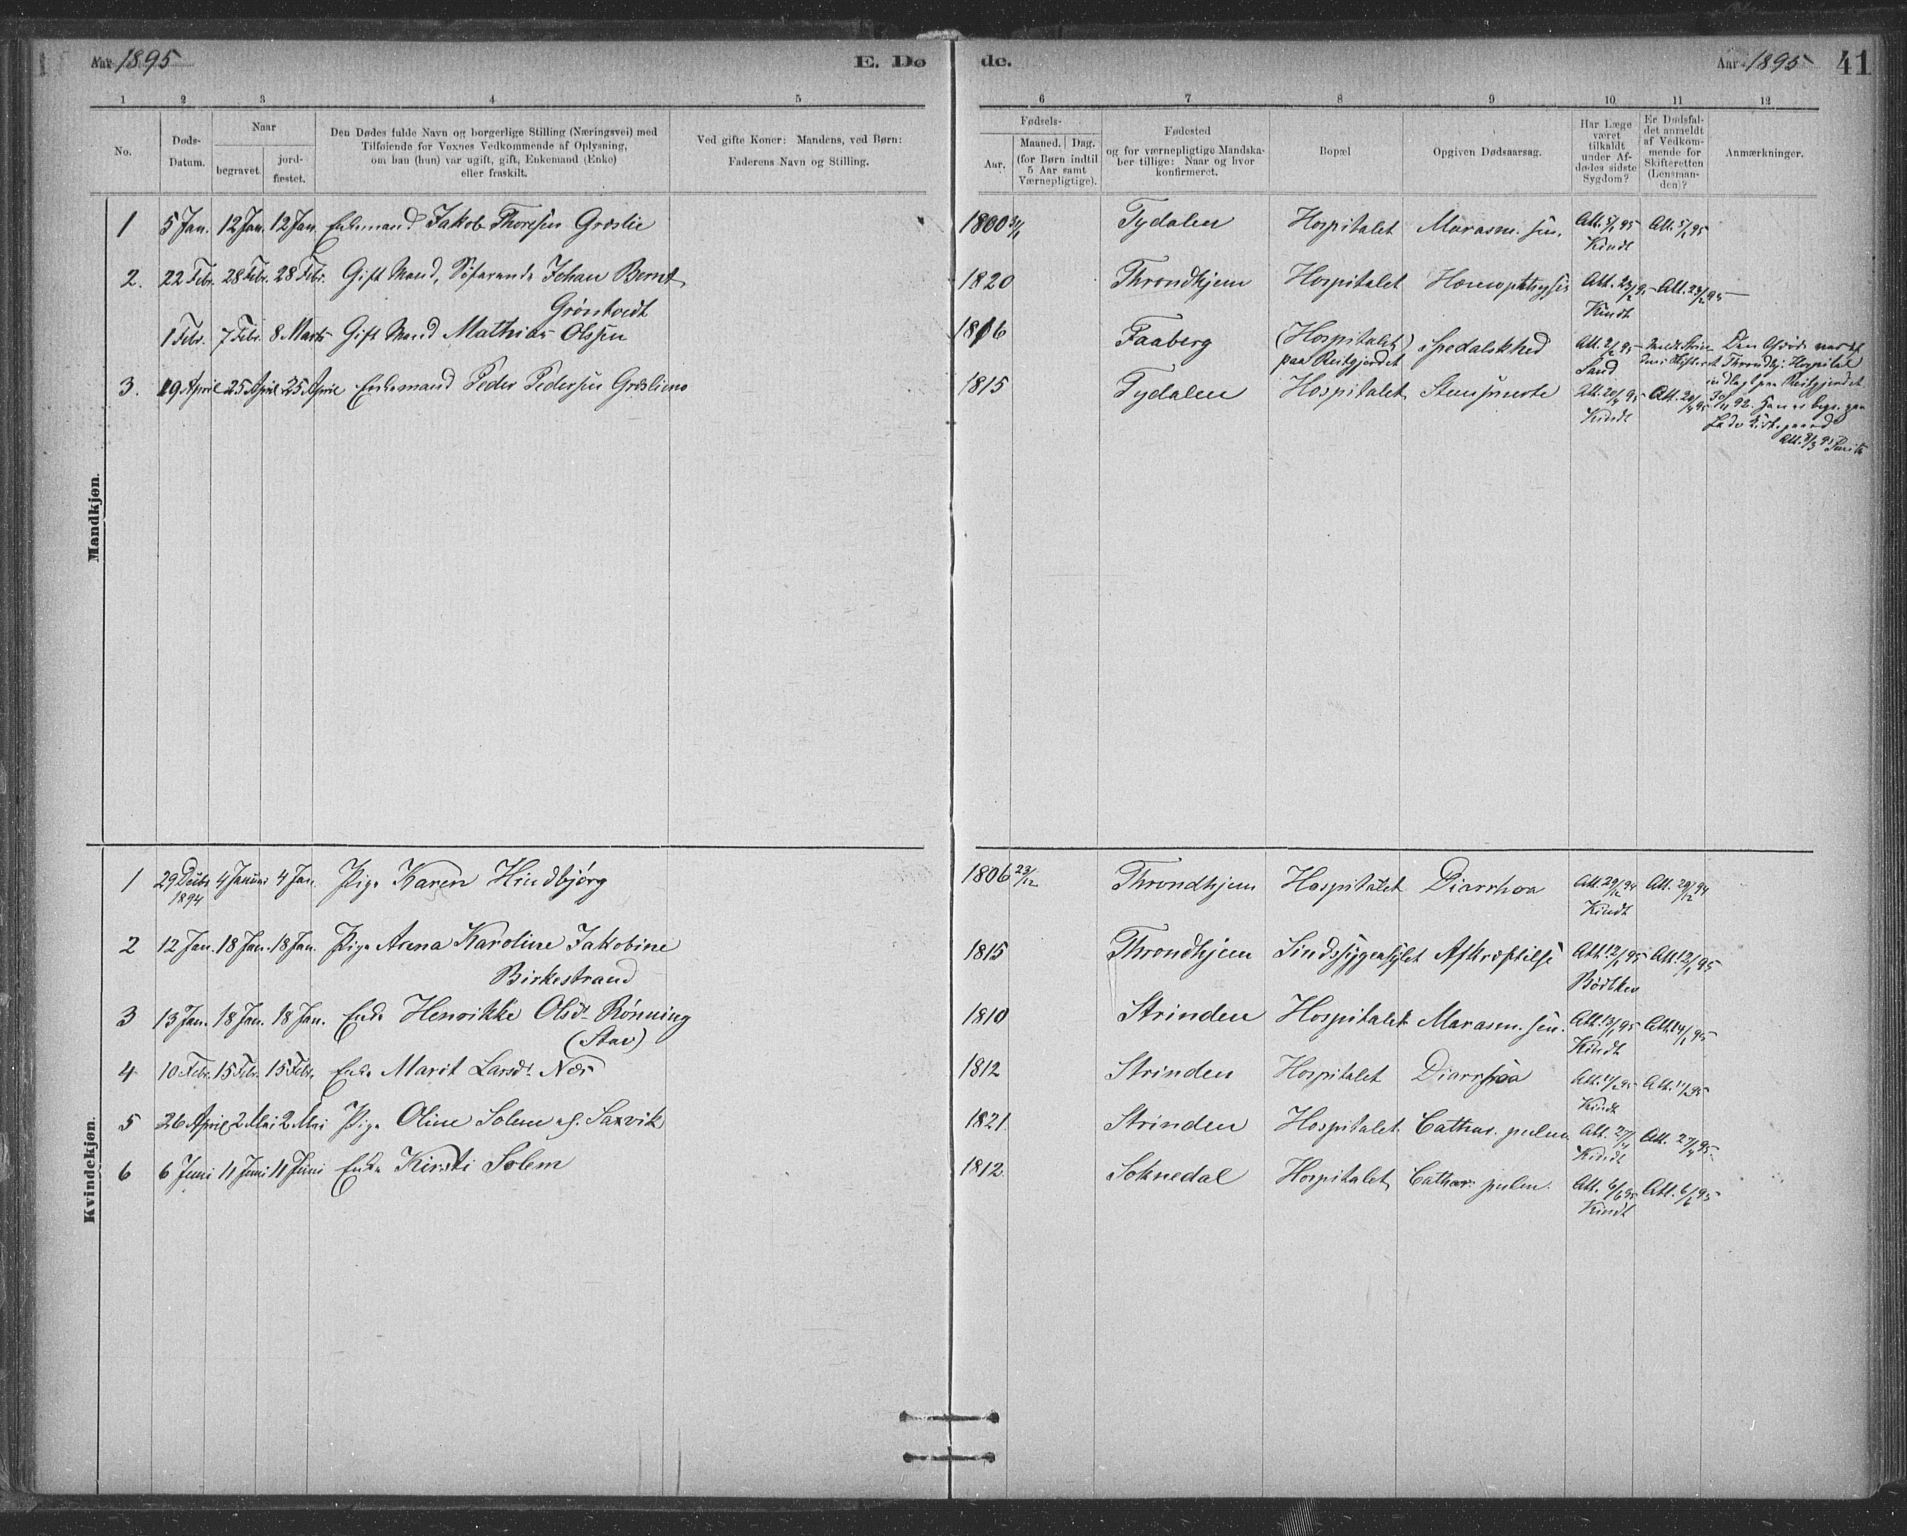 Aar 1895 E. Dø
de. Aar 1895 41
1 2 3 4 5
6 7 8 9 10 11 12
No.
Døds-
Datum.
Naar
begravet.
jord-
fæstet.
Den Dødes fulde Navn og borgerlige Stilling (Næringsvei) med
Tilføiende for Voxnes Vedkommende af Oplysning,
om han (hun) var ugift, gift, Enkemand (Enke)
eller fraskilt.
Ved gifte Koner: Mandens, ved Børn:
Faderens Navn og Stilling.
Fødsels-
Aar.
Maaned. Dag.
(for Børn indtil
5 Aar samt
Værnepligtige).
Fødested
og for værnepligtige Mandska-
ber tillige: Naar og hvor
konfirmeret.
Bopæl
Opgiven Dødsaarsag.
Har Læge
været
tilkaldt
under Af-
dødes sidste
Sygdom?
Er Dødsfal-
det anmeldt
af Vedkom-
mende for
Skifteretten
(Lensman-
den)?
Anmærkninger.
Mandkjøn.
1 5 Jan. 12 Jan. 12 Jan. Enkemand Jakob Thoresen Græslie 1800 3/1 Tydalen Hospitalet Marasm. sen. Att. 5/1 95 Att. 5/1 95
Kindt
2. 22 Febr. 28 Febr. 28 Febr. Gift Mand, Søfarende Johan Bernt 1820 Throndhjem Hospitalet Hæmoptysis Att. 23/2 95 Att. 23/2 95
Grønkvedt Kindt
1 Febr. 7 Febr. 8 Marts Gift Mand Mathias Olssen 1816 Faaberg (Hospitalet) Spedalskhed Att. 2/2 95
paa Reitgjerdet Sand
Throndhj. Hospital
indlagt paa Reitgjerdet
3. 19 April 25 April 25 April Enkemand Peder Pedersen Græsliene 1815 Tydalen Hospitalet Att. 20/4 95 Att. 20/4 95
Kindt
Lade Kirkegaard
Att. 8/3 95
Kvindekjøn.
1 29 Decbr. 4 Januar 4 Jan. Pige Karen Hindbjørg 1806 23/12 Throndhjem Hospitalet Diarrhoa Att. 29/12 94 Att. 29/12 94
1894 Kindt
2 12 Jan. 18 Jan. 18 Jan. Pige Anna Karoline Jakobine 1815 Throndhjem Sindssygeasylet Afkræftelse Att. 12/1 95 Att. 12/1 95
Birkestrand
3 13 Jan. 18 Jan. 18 Jan. Enke Henrikke Olsdt. Rønning 1810 Strinden Hospitalet Marasm. sen. Att. 13/1 95 Att. 14/1 95
(Stav) Kindt
4 10 Febr. 15 Febr. 15 Febr. Enke Marit Larsdt. Næs 1812 Strinden Hospitalet Diarrhoa Att. 11/2 95 Att. 11/2 95
Kindt
5 26 April 2 Mai 2 Mai Pige Oline Solem af. Saxvik 1821 Strinden Hospitalet Cathar. pulm. Att. 27/4 Att. 27/4 95
Kindt
6 6 Juni 11 Juni 11 Juni Enke Kirsti Solem 1812 Soknedal Hospitalet Cathar. pulm. Att. 6/6 95 Att. 6/6 95
Kindt